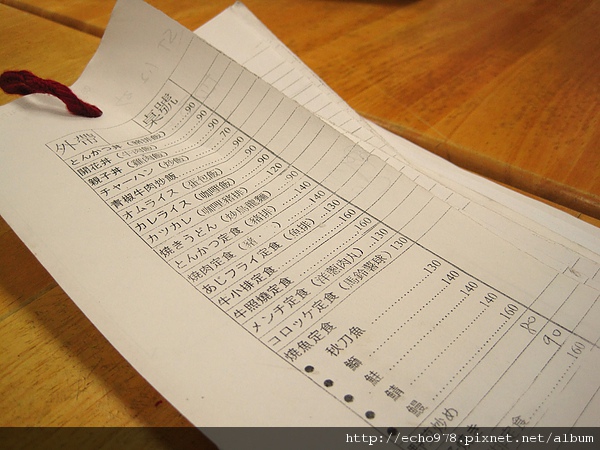 外帶 桌號
とんかつ丼（豬排飯）……90
開花丼（牛肉飯）……90
親子丼（雞肉飯）……90
チャーハン（炒飯）……70
青椒牛肉炒飯……90
オムライス（蛋包飯）……90
カレライス（咖哩飯）……90
カツカレ（咖哩豬排）……120
焼きうどん（炒烏龍麵）……90
とんかつ定食（豬排）……140
焼肉定食（豬）……130
あじフライ定食（魚排）……130
牛小排定食……160
牛照燒定食……160
メンチ定食（洋蔥肉丸）130
コロッケ定食（馬鈴薯球）130
燒魚定食
● 秋刀魚……130
● 鰤……140
● 鮭……140
● 鯖……140
鰻……160
炒め 80
90
定食……160
http://echo978.pixnet.net/album